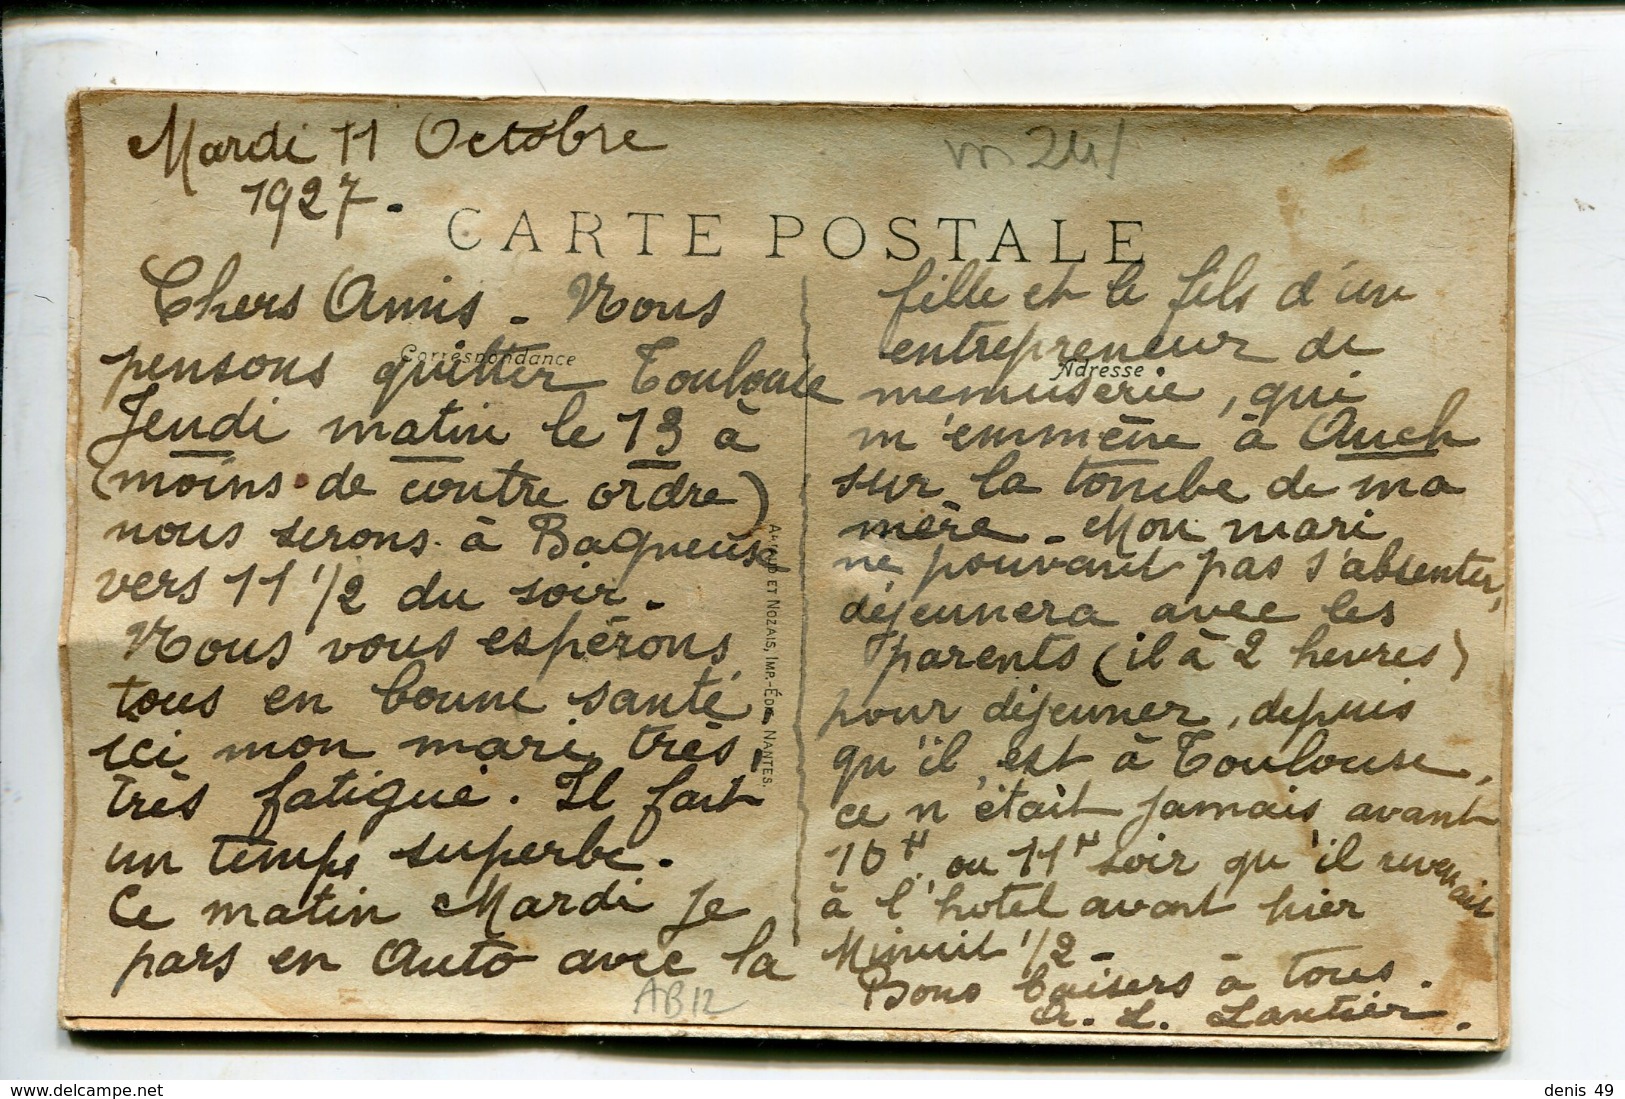 Mardi 11 Octobre
1927.
CARTE POSTALE
Correspondance
Chers Amis - Nous
pensons quitter Toulouse
Jeudi matin le 13 à
(moins de contre ordre)
nous serons à Bagneux
vers 11 1/2 du soir.
Nous vous espérons
tous en bonne santé
ici mon mari très,
très fatigué. Il fait
un temps superbe.
Ce matin Mardi je
pars en Auto avec la
Adresse
fille et le fils d'un
entrepreneur de
menuserie, qui
m'emmène à Auch
sur la tombe de ma
mère - Mon mari
ne pouvant pas s'absenter,
déjeunera avec les
parents (il à 2 heures)
pour déjeuner, depuis
qu'il est à Toulouse,
ce n'était jamais avant
10H ou 11H soir qu'il revenait
à l'hotel avant hier
Minuit 1/2 -
Bons baisers à tous.
A. L. Lantier.
ET NOZAIS, IMP.-ÉDIT. NANTES.
AB12
denis 49